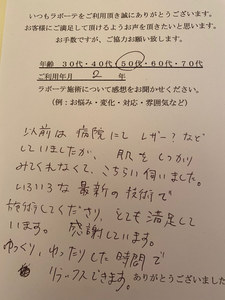 いつもラボーテをご利用頂き誠にありがとうございます。
お客様にご満足して頂けるようお声を頂きたいと思います。
お手数ですが、ご協力お願い致します。
年齢 30代・40代・50代・60代・70代
ご利用年月 2 年
ラボーテ施術について感想をお聞かせください。
(例:お悩み・変化・対応・雰囲気など)
以前は病院にし レザー?など
していましたが、肌をしっかり
みてくれなくて、こちらに伺いました。
いろいろな最新の技術で
施術してくださり、とても満足して
います。 感謝しています。
ゆっくり、ゆったりした時間で
リラックスできます。
ありがとうございました